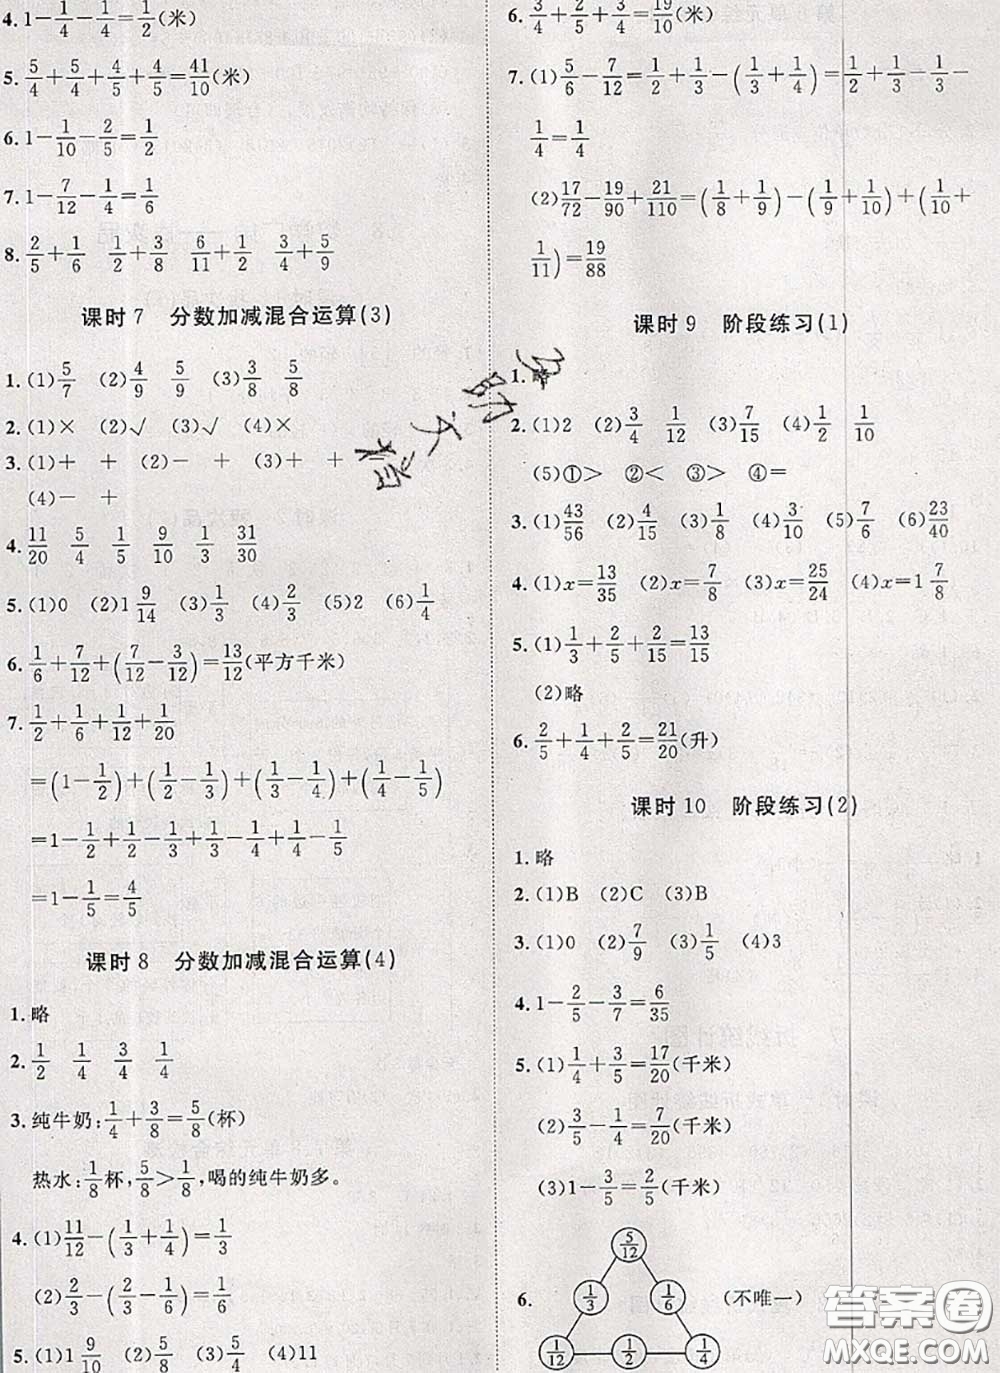 4. 1-1/4-1/4=1/2(米)
5. 5/4+5/4+4/5+4/5=41/10(米)
6. 1-1/10-2/5=1/2
7. 1-7/12-1/4=1/6
8. 2/5+1/6 1/2+3/8 6/11+1/2 3/4+5/9
课时7 分数加减混合运算(3)
1. (1)5/7 (2)4/9 5/9 (3)3/8 5/8
2. (1)× (2)√ (3)√ (4)×
3. (1)+ + (2)- + (3)+ +
(4)- +
4. 11/20 5/4 1/5 9/10 1/3 31/30
5. (1)0 (2)1 9/14 (3)1/3 (4)2/3 (5)2 (6)1/4
6. 1/6+7/12+(7/12-3/12)=13/12(平方千米)
7. 1/2+1/6+1/12+1/20
=(1-1/2)+(1/2-1/3)+(1/3-1/4)+(1/4-1/5)
=1-1/2+1/2-1/3+1/3-1/4+1/4-1/5
=1-1/5=4/5
课时8 分数加减混合运算(4)
1. 略
2. 1/2 1/4 3/4 1/4
3. 纯牛奶:1/4+3/8=5/8(杯)
热水:1/8杯,5/8>1/8,喝的纯牛奶多。
4. (1)11/12-(1/3+1/4)=1/3
(2)2/3-(2/3-1/6)=1/6
5. (1)1 9/10 (2)5/8 (3)5/4 (4)11
6. 3/4+2/5+3/4=19/10(米)
7. (1)5/6-7/12=1/2+1/3-(1/3+1/4)=1/2+1/3-1/3-
1/4=1/4
(2)17/72-19/90+21/110=(1/8+1/9)-(1/9+1/10)+(1/10+
1/11)=19/88
课时9 阶段练习(1)
1. 略
2. (1)2 (2)3/4 1/12 (3)7/15 4/15 (4)1/2 1/10
(5)①> ②< ③> ④=
3. (1)43/56 (2)4/15 (3)1/8 (4)3/10 (5)7/6 (6)23/40
4. (1)x=13/35 (2)x=7/8 (3)x=25/24 (4)x=1 7/8
5. (1)1/3+2/5+2/15=13/15
(2)略
6. 2/5+1/4+2/5=21/20(升)
课时10 阶段练习(2)
1. 略
2. (1)B (2)C (3)B
3. (1)0 (2)7/9 (3)1/5 (4)3
4. 1-2/5-3/7=6/35
5. (1)1/4+3/5=17/20(千米)
(2)3/5-1/4=7/20(千米)
(3)1-3/5=2/5(千米)
5/12
6. 1/3 1/6 (不唯一)
1/12 1/2 1/4
答案卷
MXQE.COM